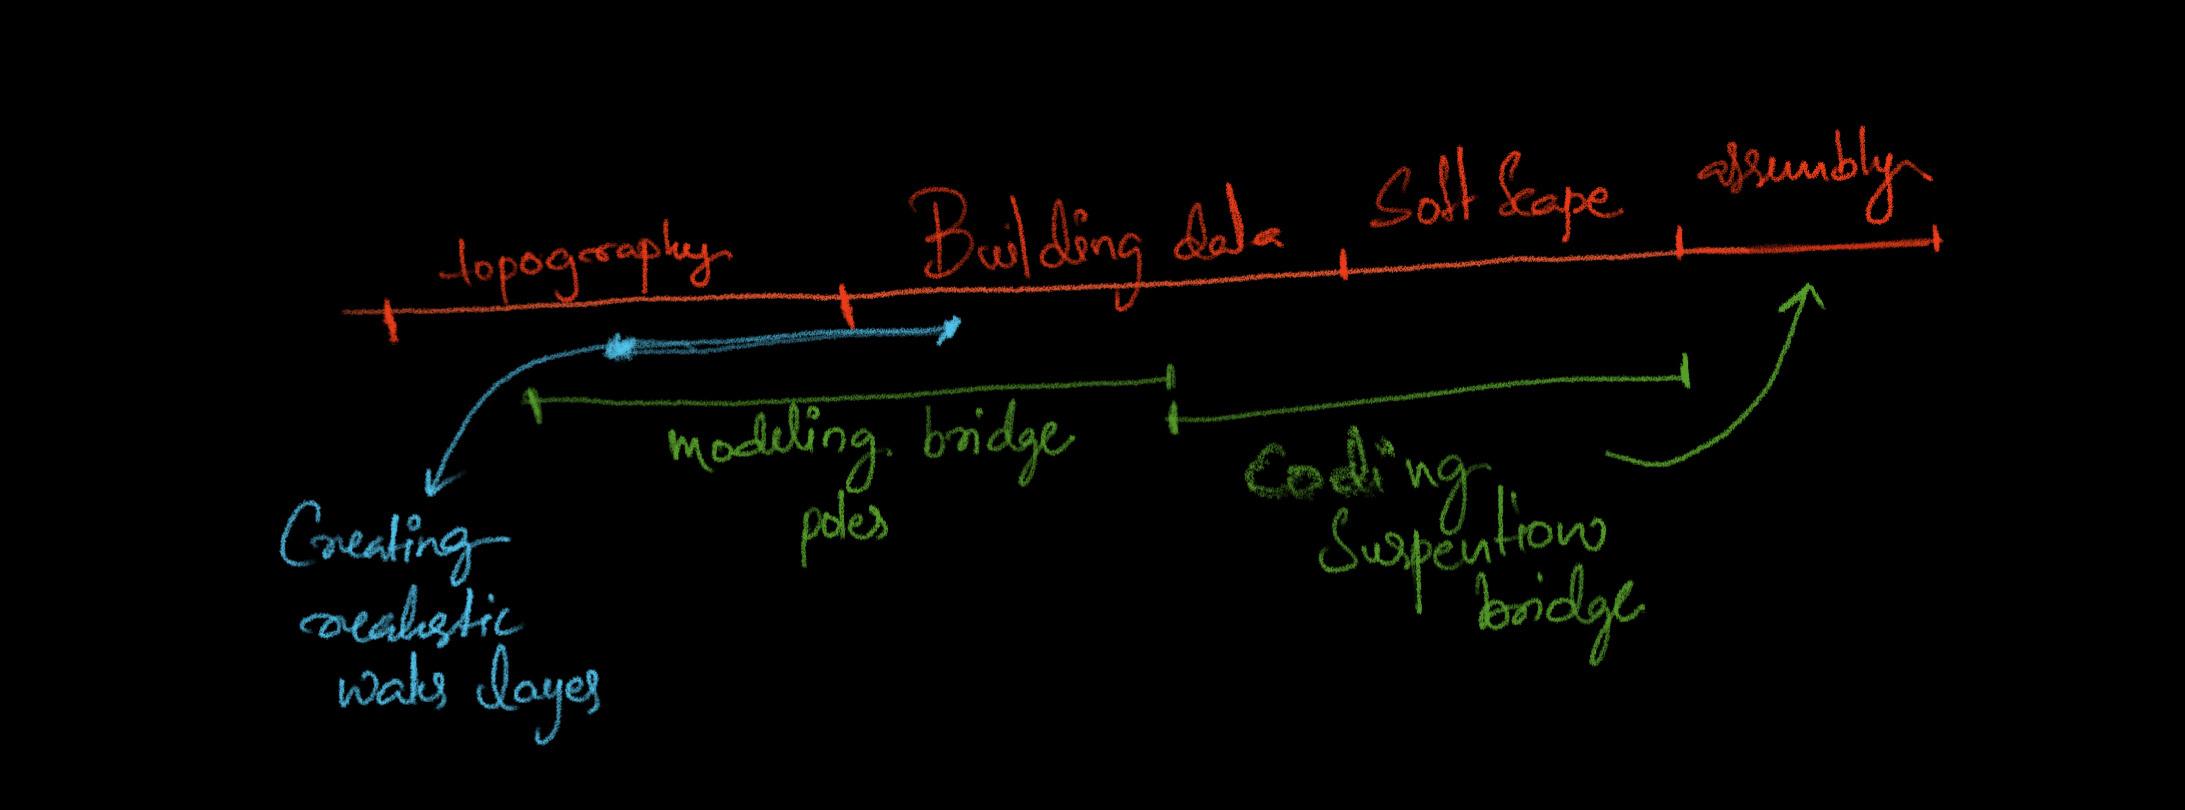 topography
Building data
Soft Scape
assembly
modeling bridge
poles
Coding
Suspention
bridge
Creating
realistic
layer